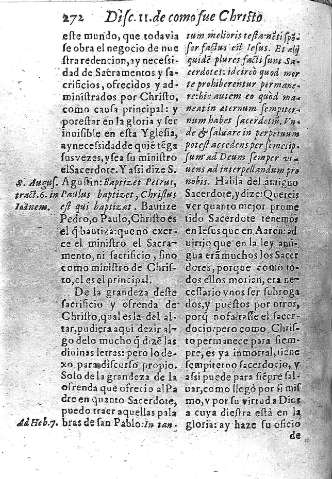 272 Disc. 11. de como fue Christo
este mundo, que todavia
se obra el negocio de nue
stra redencion, ay necessi
dad de Sacramentos y sa
crificios, ofrecidos y ad-
ministrados por Christo,
como causa principal: y
por estar en la gloria y ser
inuisible en esta Yglesia,
ay necessidad de quiē tēga
sus vezes, y sea su ministro
el Sacerdote. Y assi dize S.
S. Augus.
tract. 6. in
Ioānem.
Agustin: Baptizet Petrus,
Paulus baptizet, Christus
est qui baptizat. Bautize
Pedro, o Paulo, Christo es
el q̄ bautiza: que no exer-
ce el ministro el Sacra-
mento, ni sacrificio, sino
como ministro de Chris-
to, el es el principal.
De la grandeza deste
sacrificio y ofrenda de
Christo, qual es la del al-
tar, pudiera aqui dezir al-
go de lo mucho q̄ dizē las
diuinas letras: pero lo de-
xo para discurso propio.
Solo de la grandeza de la
ofrenda que ofrecio al Pa
dre en quanto Sacerdote,
puedo traer aquellas pala
Ad Heb. 7.
bras de san Pablo: In tan-
tum melioris testamēti spō-
sor factus est Iesus. Et alij
quidē plures facti sunt Sa-
cerdotes: idcirco quod mor
te prohiberentur permane-
re: hic autem eo quod ma-
neat in æternum sempiter-
num habet sacerdotiū. Vn
de & saluare in perpetuum
potest accedens per semetip-
sum ad Deum semper vi-
uens ad interpellandum pro
nobis. Habla del antiguo
Sacerdote, y dize: Quereis
ver quanto mejor prome
tido Sacerdote tenemos
en Iesus que en Aaron: ad
uirtio que en la ley anti-
gua erā muchos los Sacer
dotes, porque como to-
dos ellos morian, era ne-
cessario vnos ser subroga
dos, y puestos por otros,
porq̄ no faltasse el sacer-
docio: pero como Chris-
to permanece para siem-
pre, es ya inmortal, tiene
sempiterno sacerdocio, y
assi puede para siēpre sal-
uar, como llegó por si mis
mo, y por su virtud a Dios
a cuya diestra está en la
gloria: ay haze su oficio
de